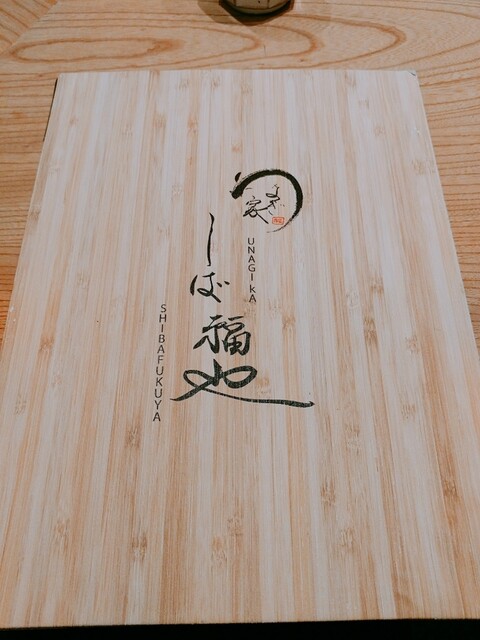 うなぎ家
UNAGIkA
しば福や
SHIBAFUKUYA